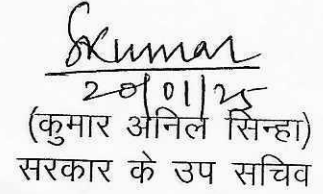 Skumar
20/01/25
(कुमार अनिल सिन्हा)
सरकार के उप सचिव